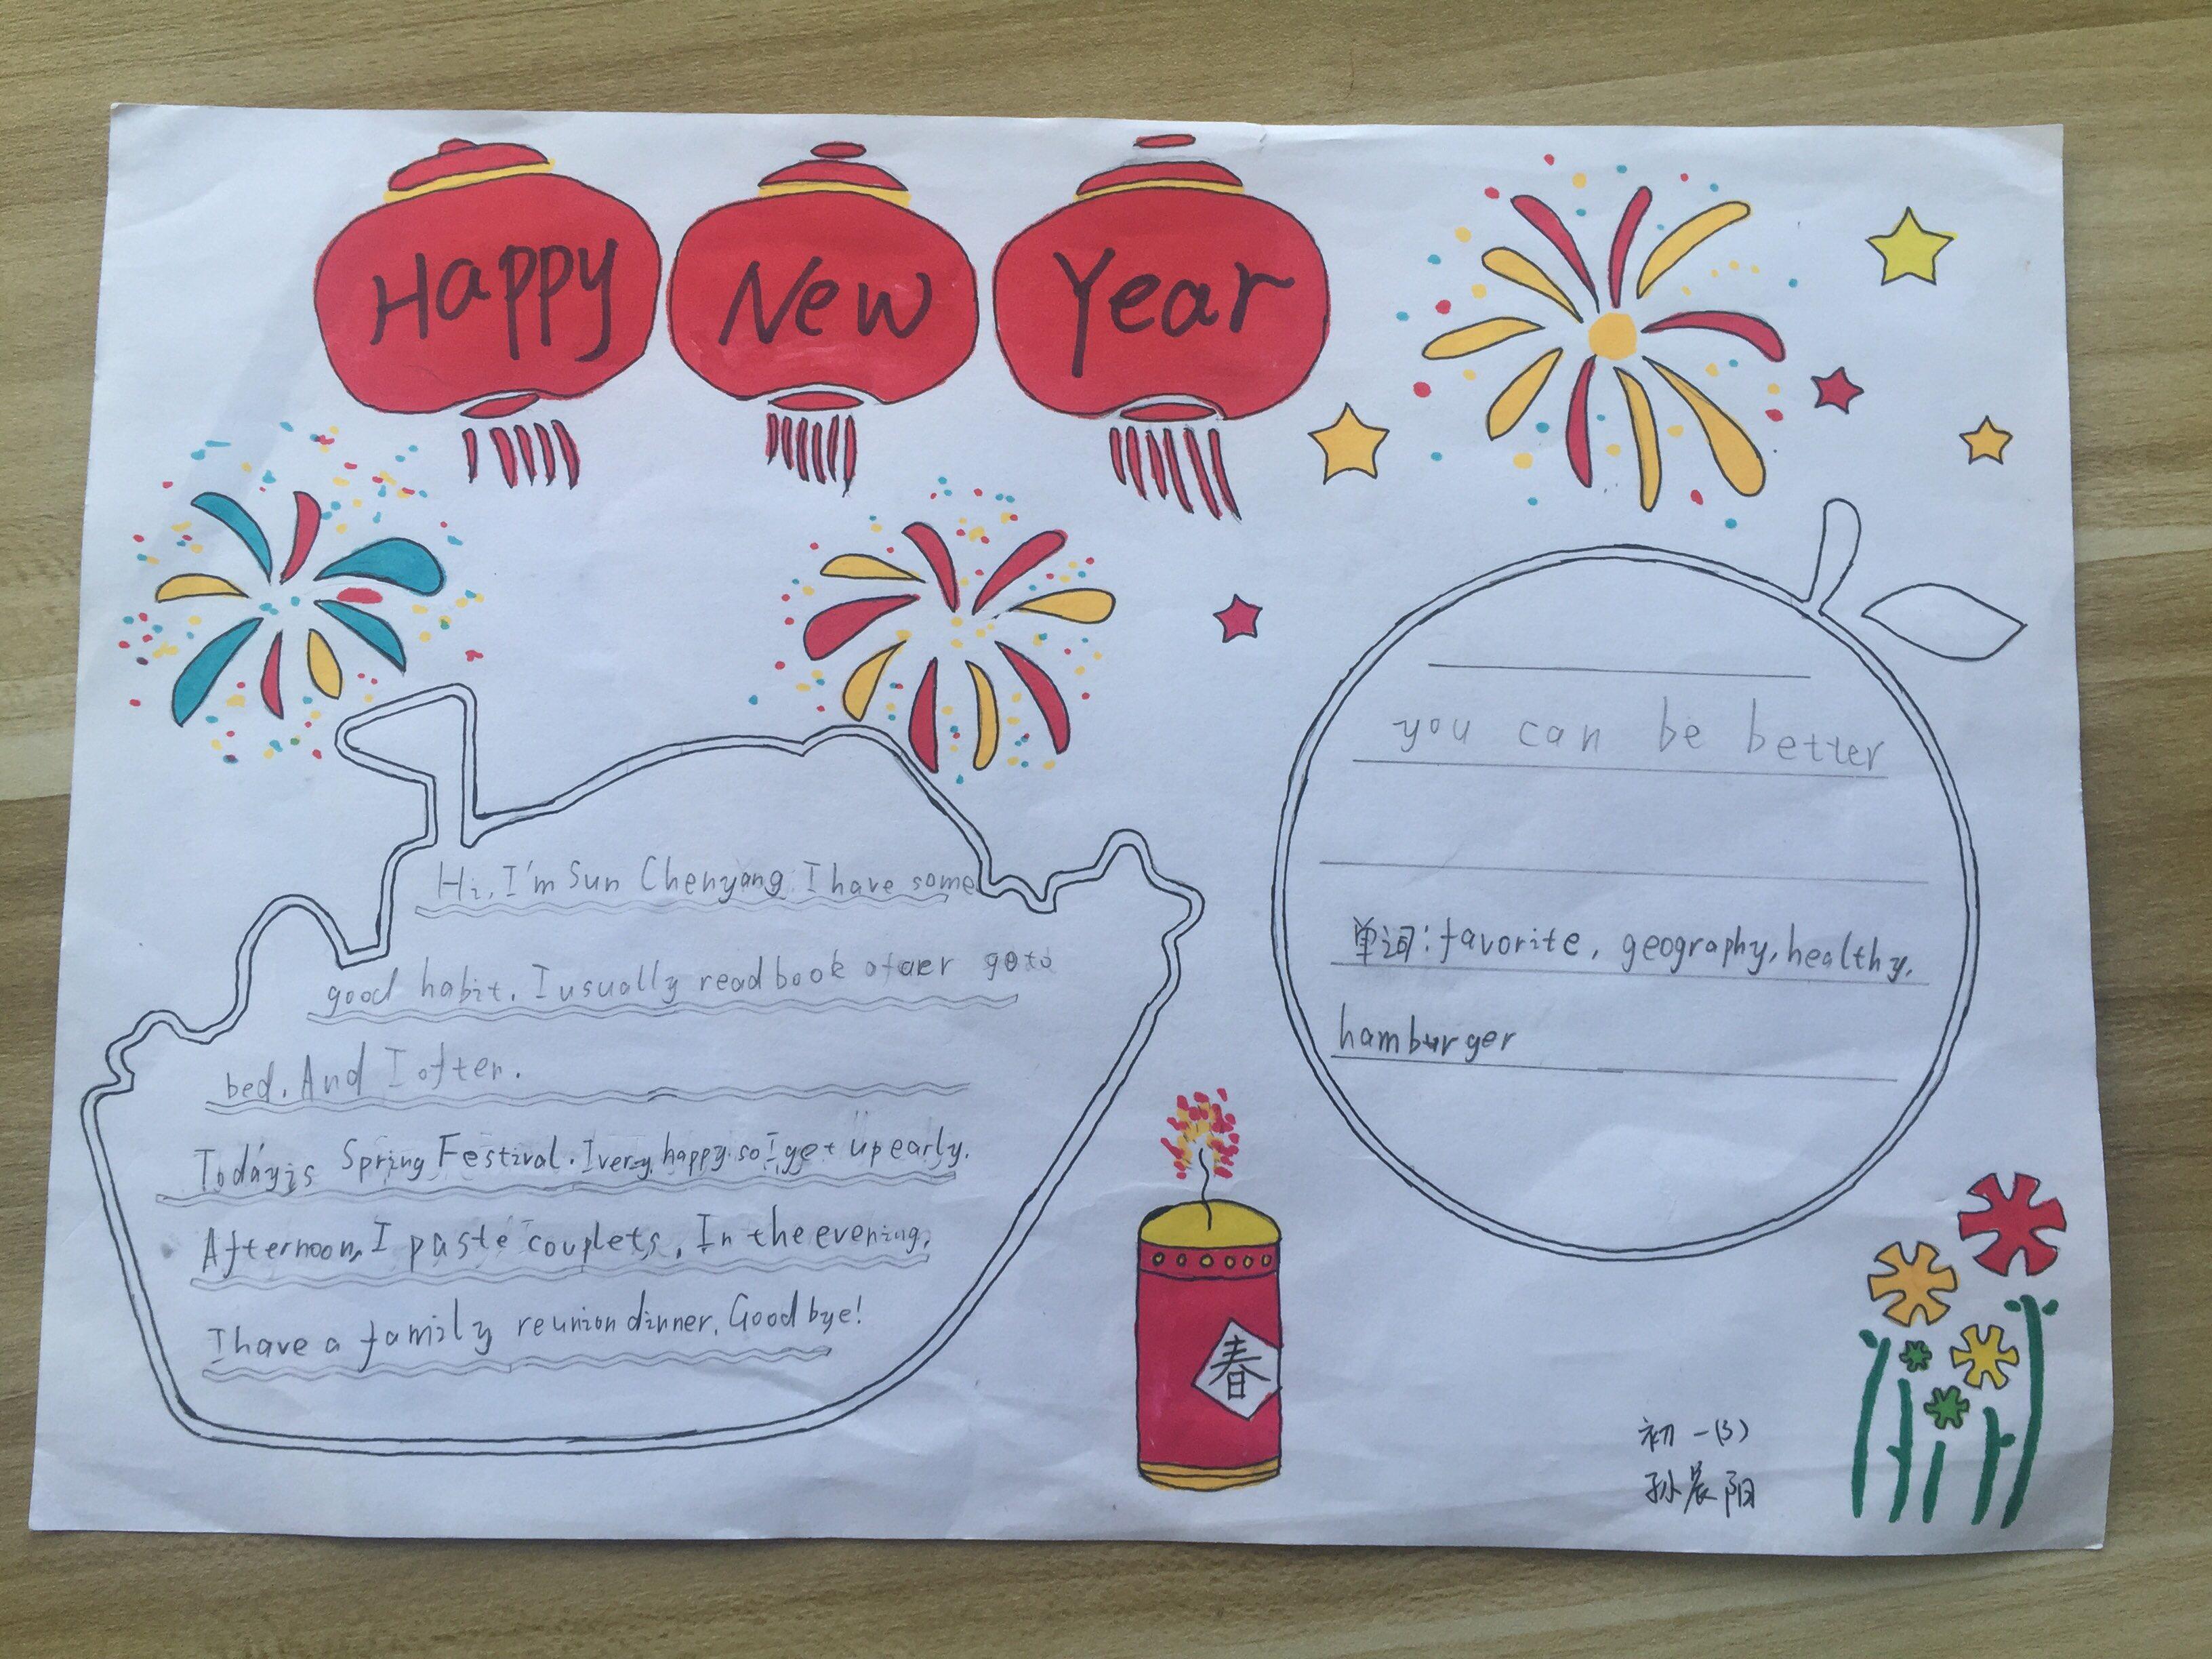 Happy New Year
you can be better
Hi, I'm Sun Chenyang. I have some
good habit. I usually read book go to
bed. And I often.
Today is Spring Festival. I very happy so I get up early.
Afternoon, I paste couplets. In the evening,
I have a family reunion dinner. Good bye!
单词: favorite, geography, healthy,
hamburger
春
初一(3)
孙晨阳